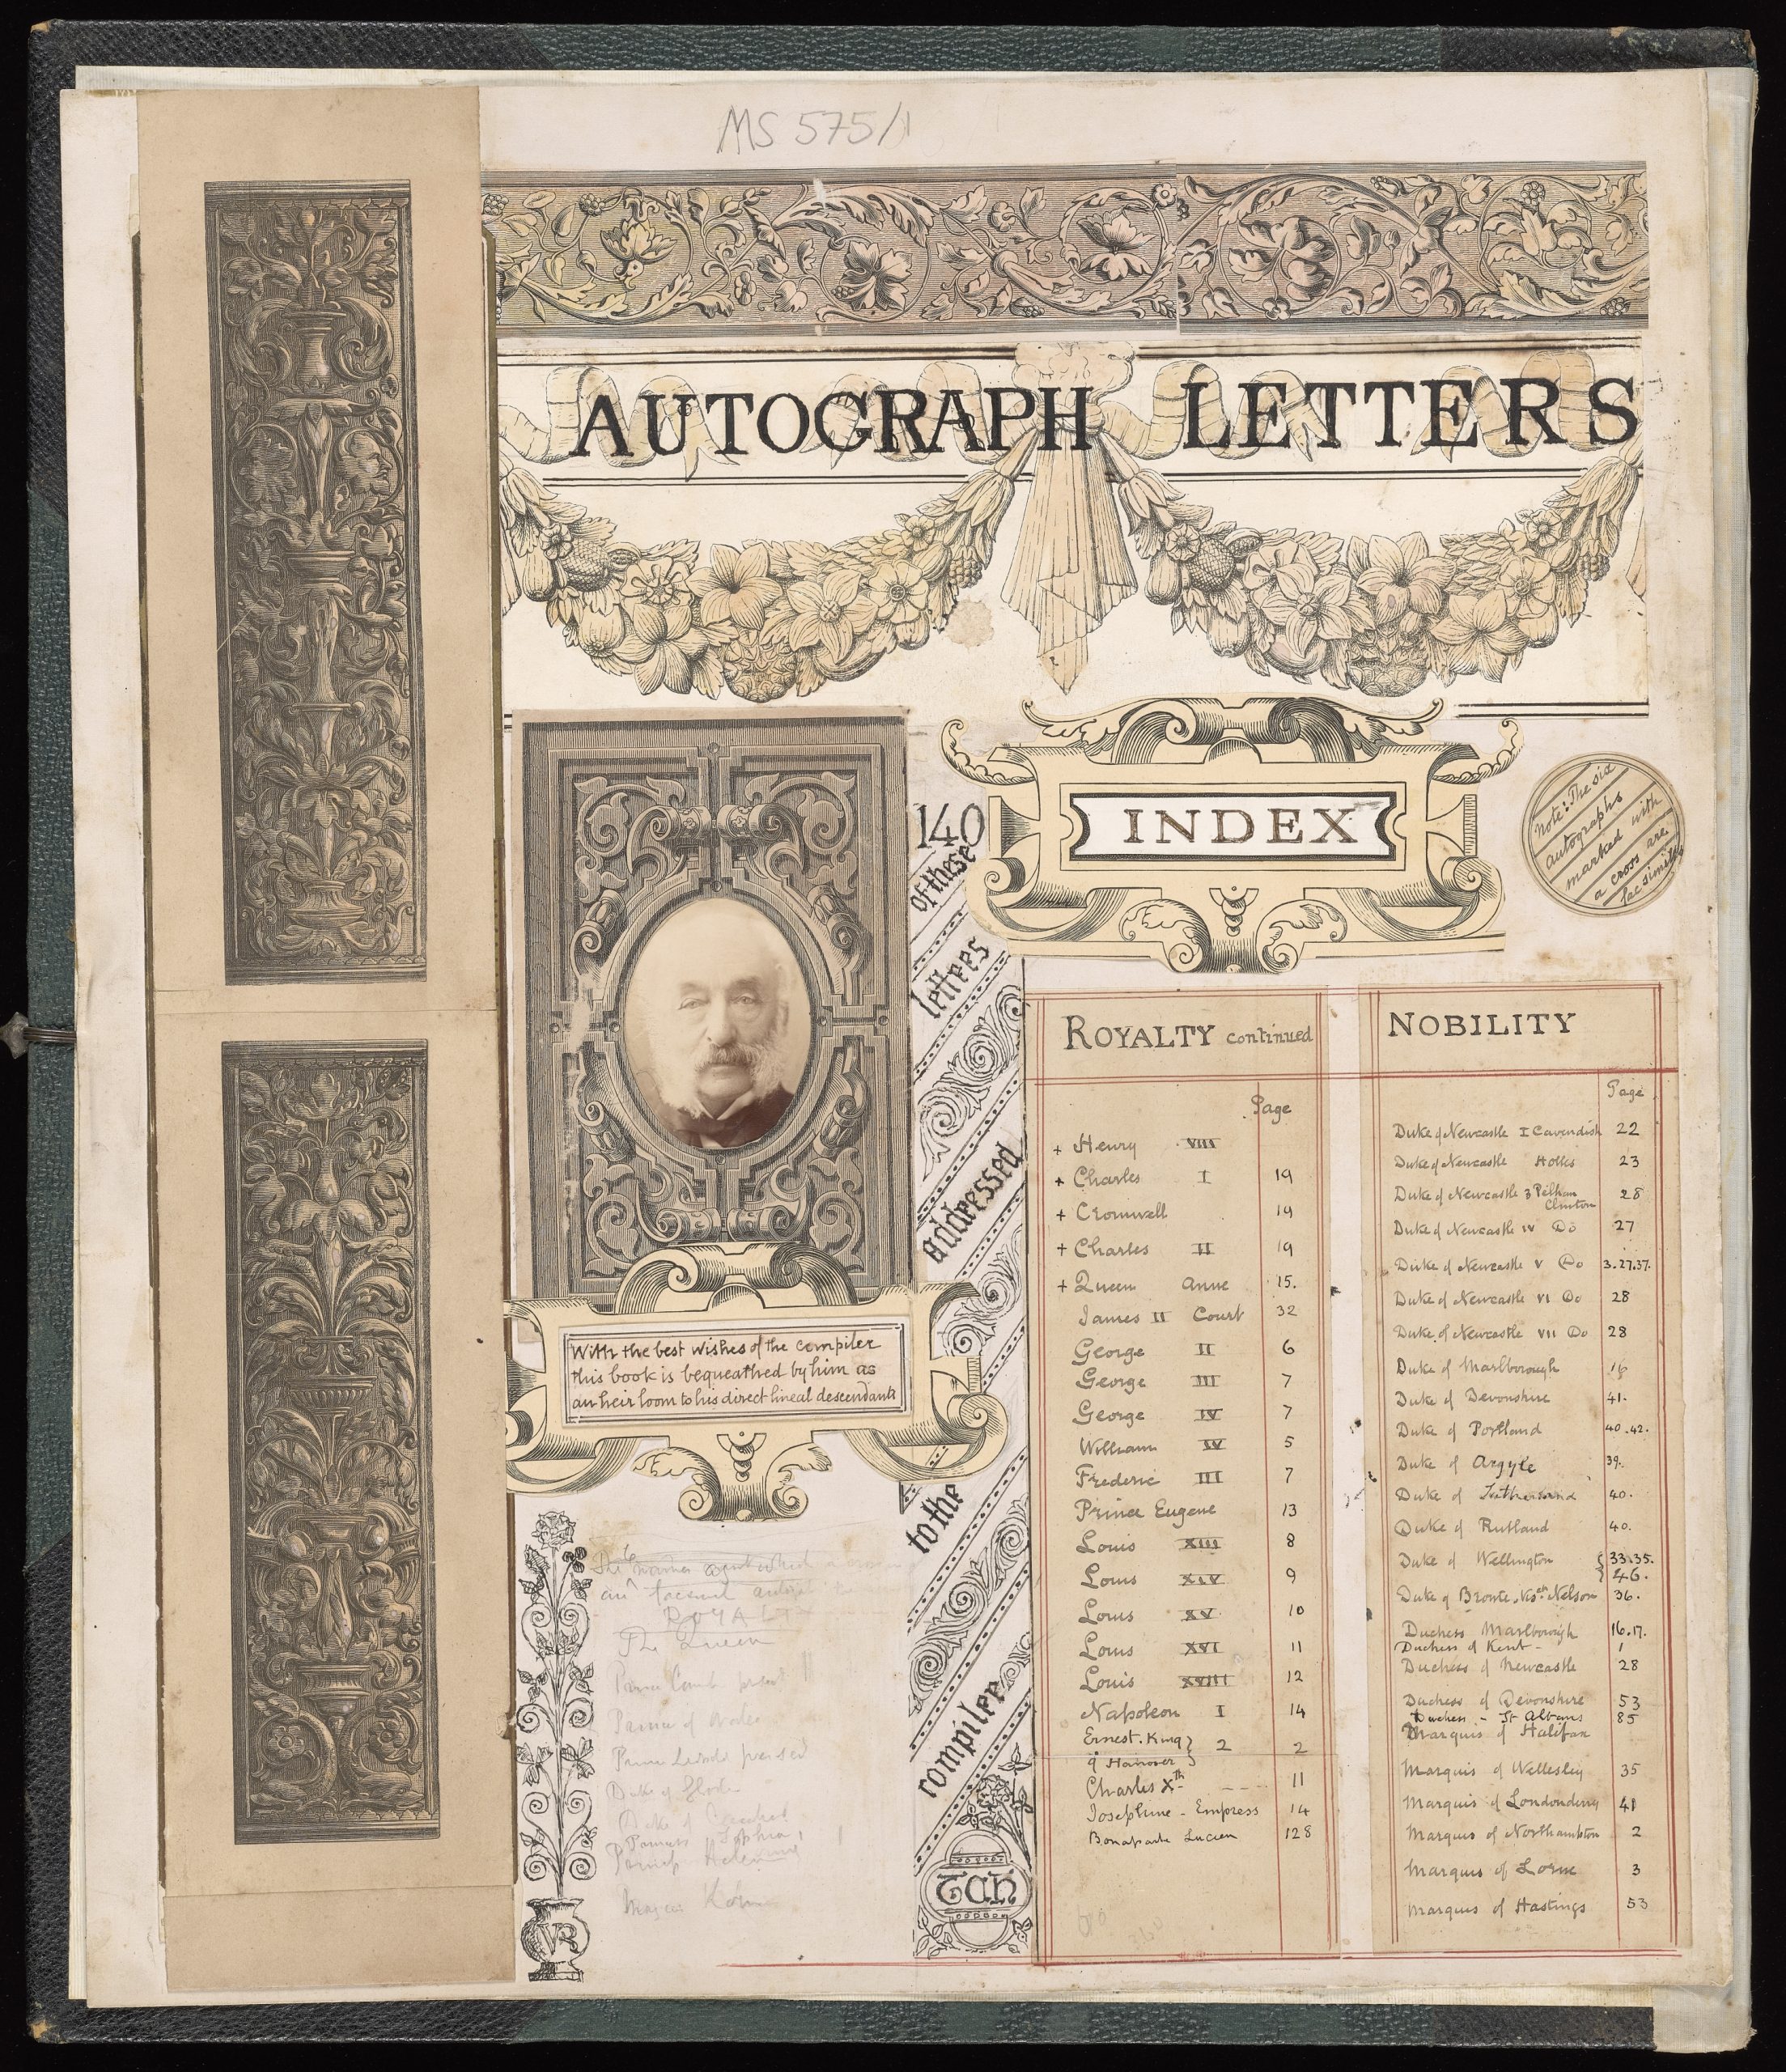 MS 575/1
AUTOGRAPH LETTERS
INDEX
Note: The six
autographs
marked with
a cross are
facsimiles
140
of these
letters
addressed
to the
compiler
TAH
With the best wishes of the compiler
this book is bequeathed by him as
an heir loom to his direct lineal descendants
ROYALTY
The Queen
VR
ROYALTY continued
Page
+ Henry VIII
+ Charles I 19
+ Cromwell 19
+ Charles II 19
+ Queen Anne 15.
James II Court 32
George II 6
George III 7
George IV 7
William IV 5
Frederic III 7
Prince Eugene 13
Louis XIII 8
Louis XIV 9
Louis XV 10
Louis XVI 11
Louis XVIII 12
Napoleon I 14
Ernest. King } 2 2
of Hanover }
Charles Xth - -- 11
Josephine - Empress 14
Bonaparte Lucien 128
NOBILITY
Page
Duke of Newcastle I Cavendish 22
Duke of Newcastle Holles 23
Duke of Newcastle 3 Pelham Clinton 28
Duke of Newcastle IV Do 27
Duke of Newcastle V Do 3.27.37.
Duke of Newcastle VI Do 28
Duke of Newcastle VII Do 28
Duke of Marlborough 16
Duke of Devonshire 41.
Duke of Portland 40.42.
Duke of Argyle 39.
Duke of Sutherland 40.
Duke of Rutland 40.
Duke of Wellington { 33.35.
46.
Duke of Bronte, Visct Nelson 36.
Duchess Marlborough 16.17.
Duchess of Kent - 1
Duchess of Newcastle 28
Duchess of Devonshire 53
Duchess - St Albans 85
Marquis of Halifax
Marquis of Wellesley 35
Marquis of Londonderry 41
Marquis of Northampton 2
Marquis of Lorne 3
Marquis of Hastings 53